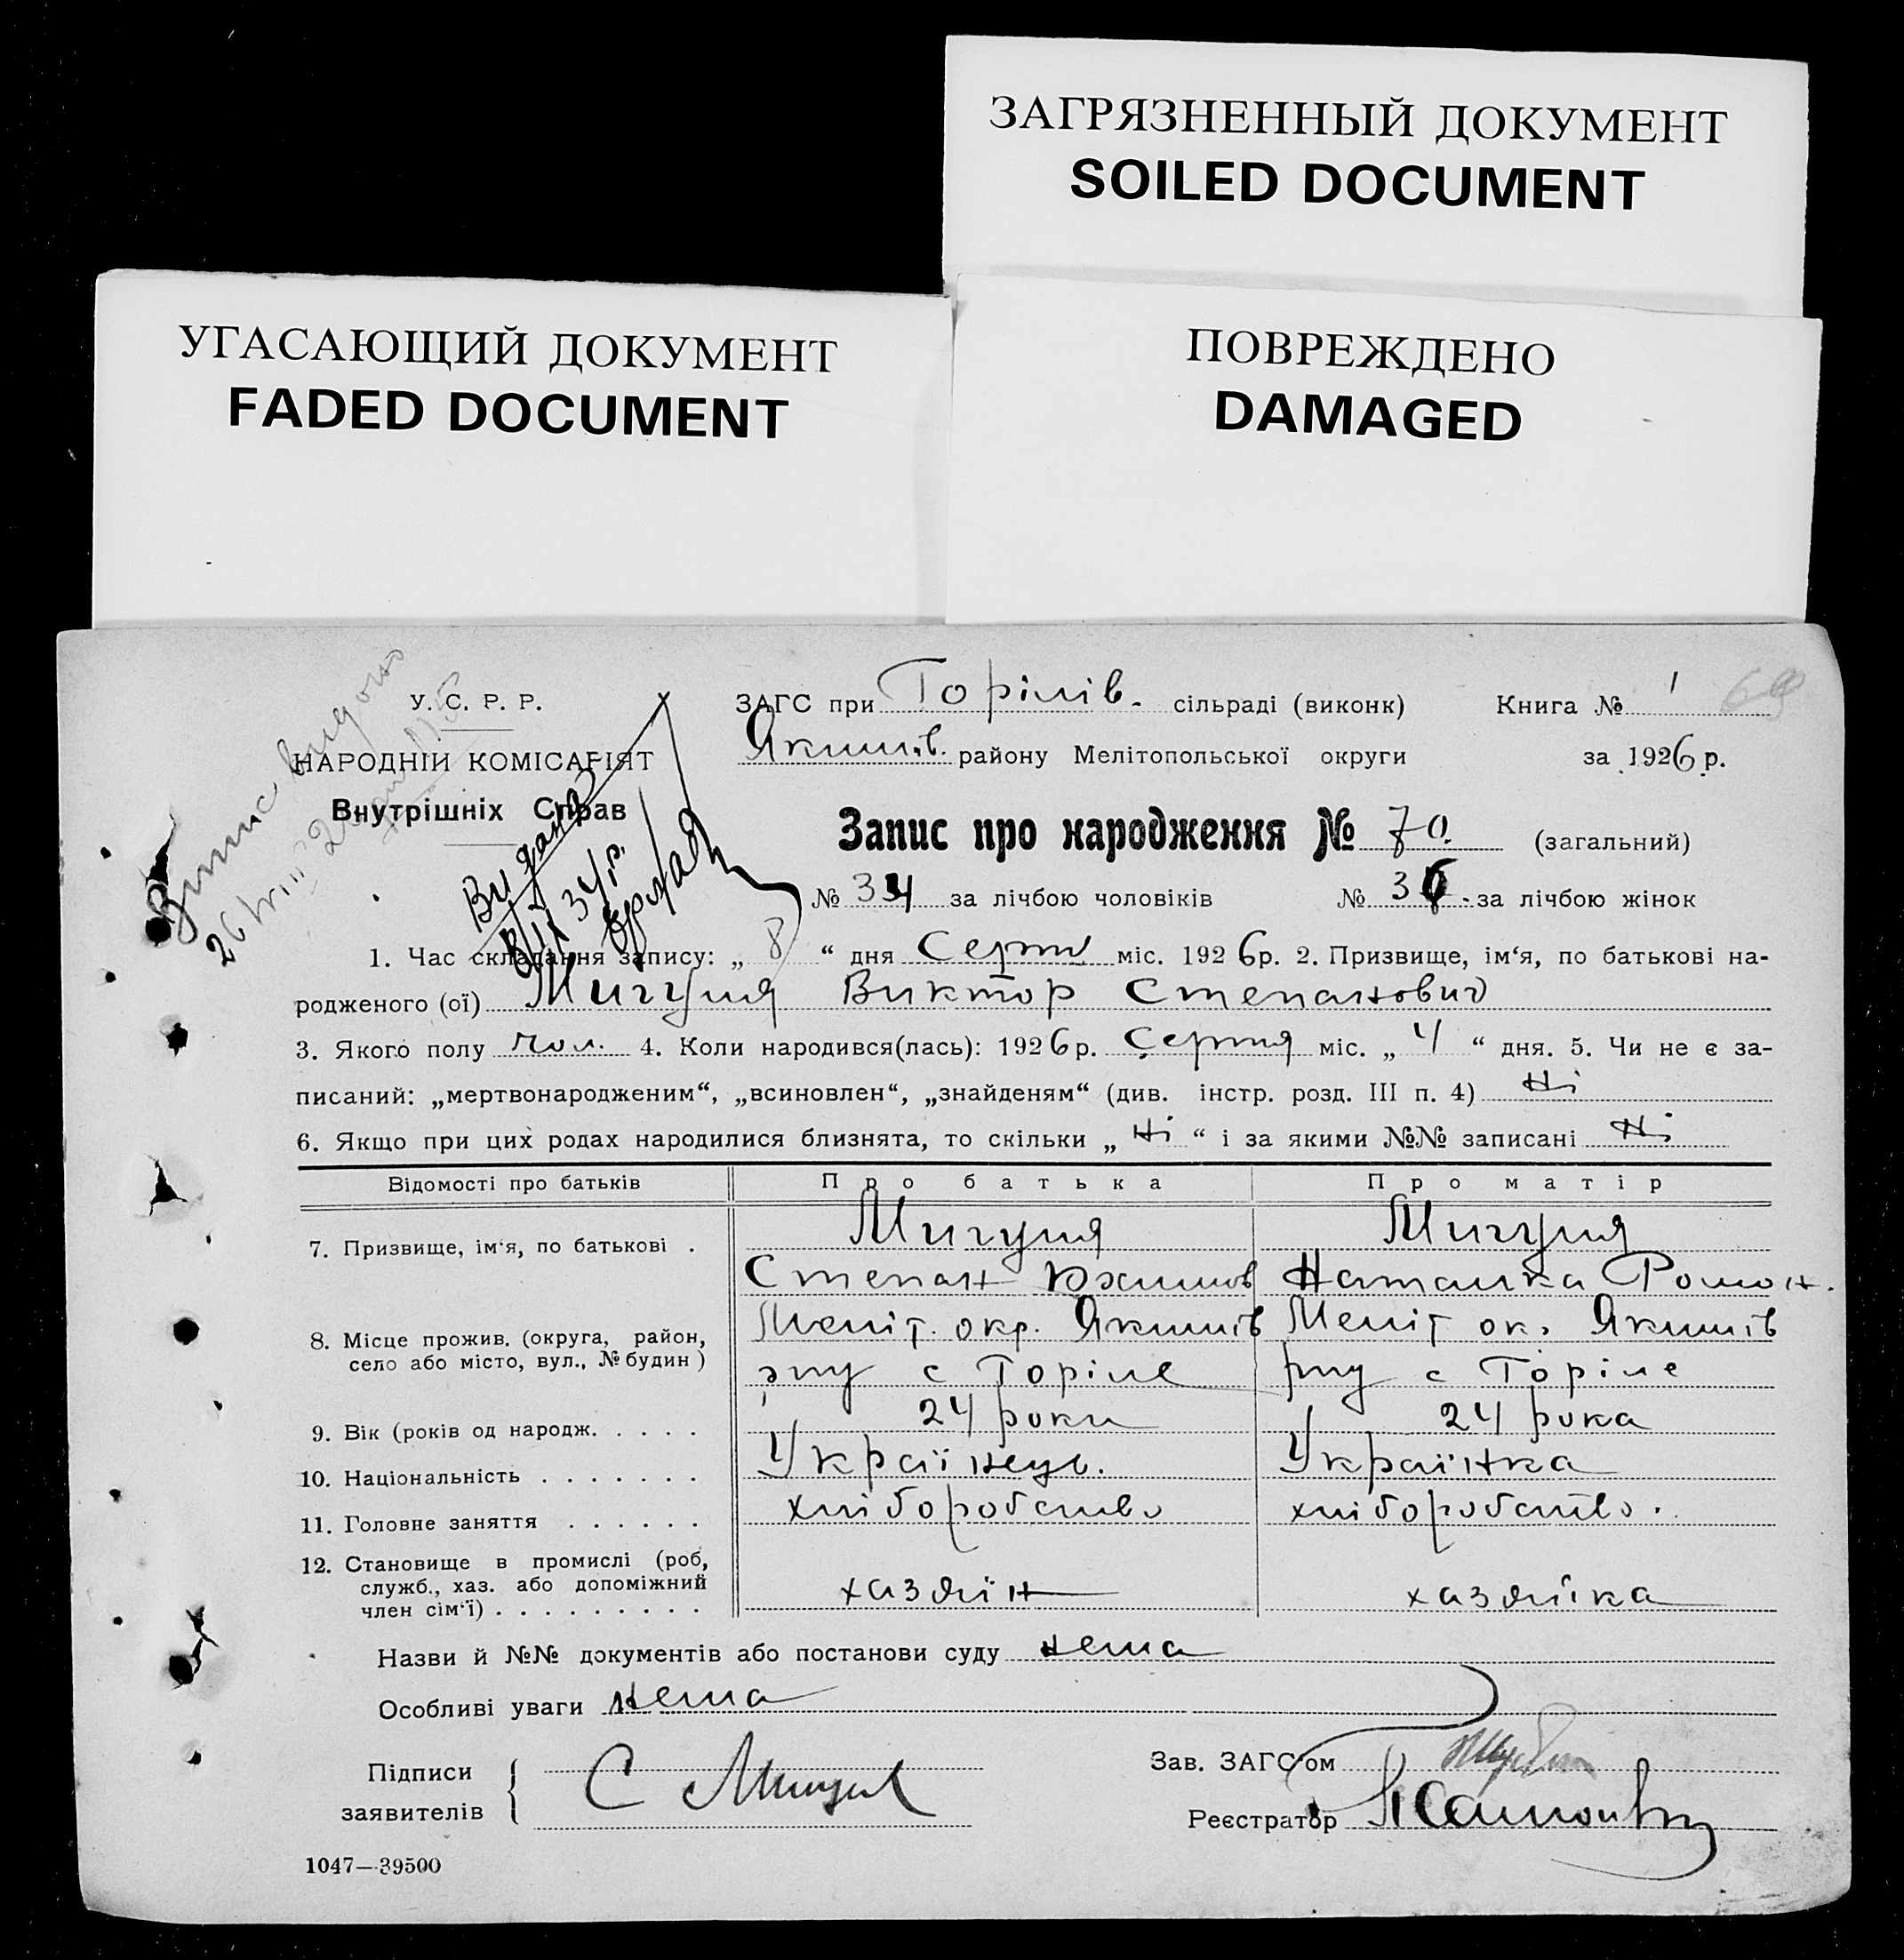 ЗАГРЯЗНЕННЫЙ ДОКУМЕНТ
SOILED DOCUMENT
УГАСАЮЩИЙ ДОКУМЕНТ
FADED DOCUMENT
ПОВРЕЖДЕНО
DAMAGED
У. С. Р. Р.
НАРОДНІЙ КОМІСАРІЯТ
Внутрішніх Справ
ЗАГС при Горілів. сільраді (виконк) Книга № 1
Якимів. району Мелітопольської округи за 1926 р.
Запис про народження № 70. (загальний)
№ 34 за лічбою чоловіків № 36 за лічбою жінок
1. Час складання запису: „ 8 “ дня Серпня міс. 1926р. 2. Призвище, ім‘я, по батькові на-
родженого (ої) Мигуля Виктор Степанович
3. Якого полу чол. 4. Коли народився(лась): 1926р. Серпня міс. „ 4 “ дня. 5. Чи не є за-
писаний: „мертвонародженим“, „всиновлен“, „знайденям“ (див. інстр. розд. III п. 4) Ні
6. Якщо при цих родах народилися близнята, то скільки „ Ні “ і за якими №№ записані Ні
Відомості про батьків Про батька Про матір
7. Призвище, ім‘я, по батькові . Мигуля Мигуля
Степан Юхимов Наталка Роман.
8. Місце прожив. (округа, район, Меліт. окр. Якимів Меліт ок. Якимів
село або місто, вул., № будин) рну с Горіле рну с Горіле
9. Вік (років од народж. . . . . 24 роки 24 рока
10. Національність . . . . . . . Українець. Українка
11. Головне заняття . . . . . . хліборобство хліборобство.
12. Становище в промислі (роб,
служб., хаз. або допоміжний
член сім‘ї) . . . . . . . . . хазяїн хазяїка
Назви й №№ документів або постанови суду нема
Особливі уваги нема
Підписи
заявителів
С Мигуля
Зав. ЗАГС‘ом
Реєстратор
1047—39500